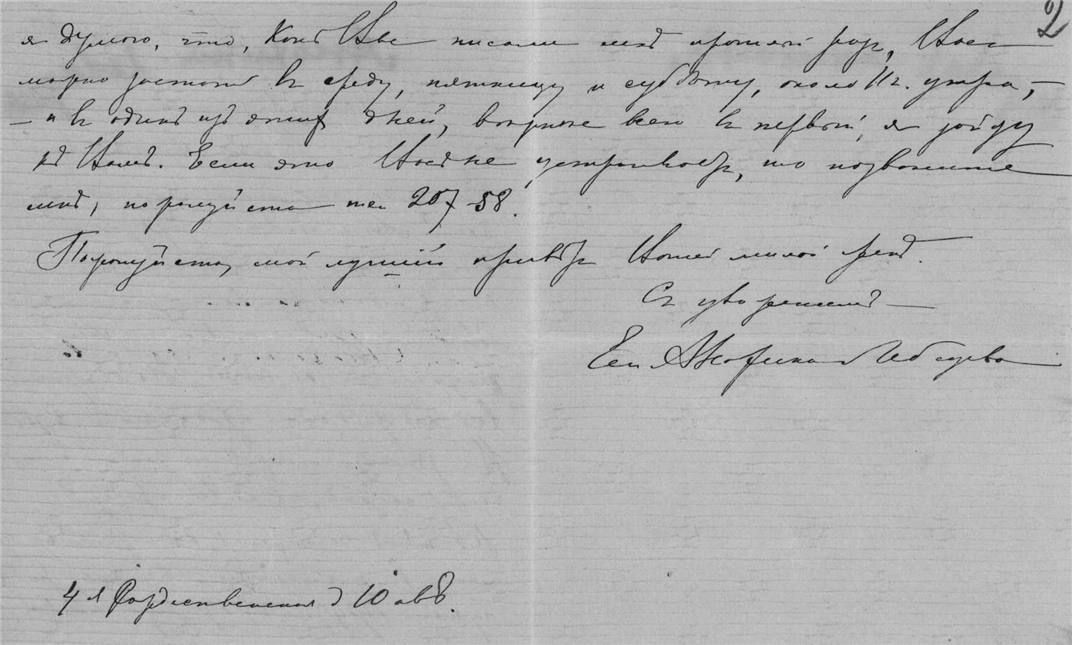 2
я думаю, что, какъ Вы писали мнѣ прошлый разъ, Васъ
можно застать въ среду, пятницу и субботу, около 11 ч. утра, –
– и въ одинъ изъ этихъ дней, вѣрнѣе всего въ первый, я зайду
къ Вамъ. Если это Васъ не устраиваетъ, то позвоните
мнѣ, пожалуйста тел 207-58.
Пожалуйста, мой лучшій привѣтъ Вашей милой женѣ.
Съ уваженіемъ
Ел Лебедева
4 я Рождественская д 10 кв 8.